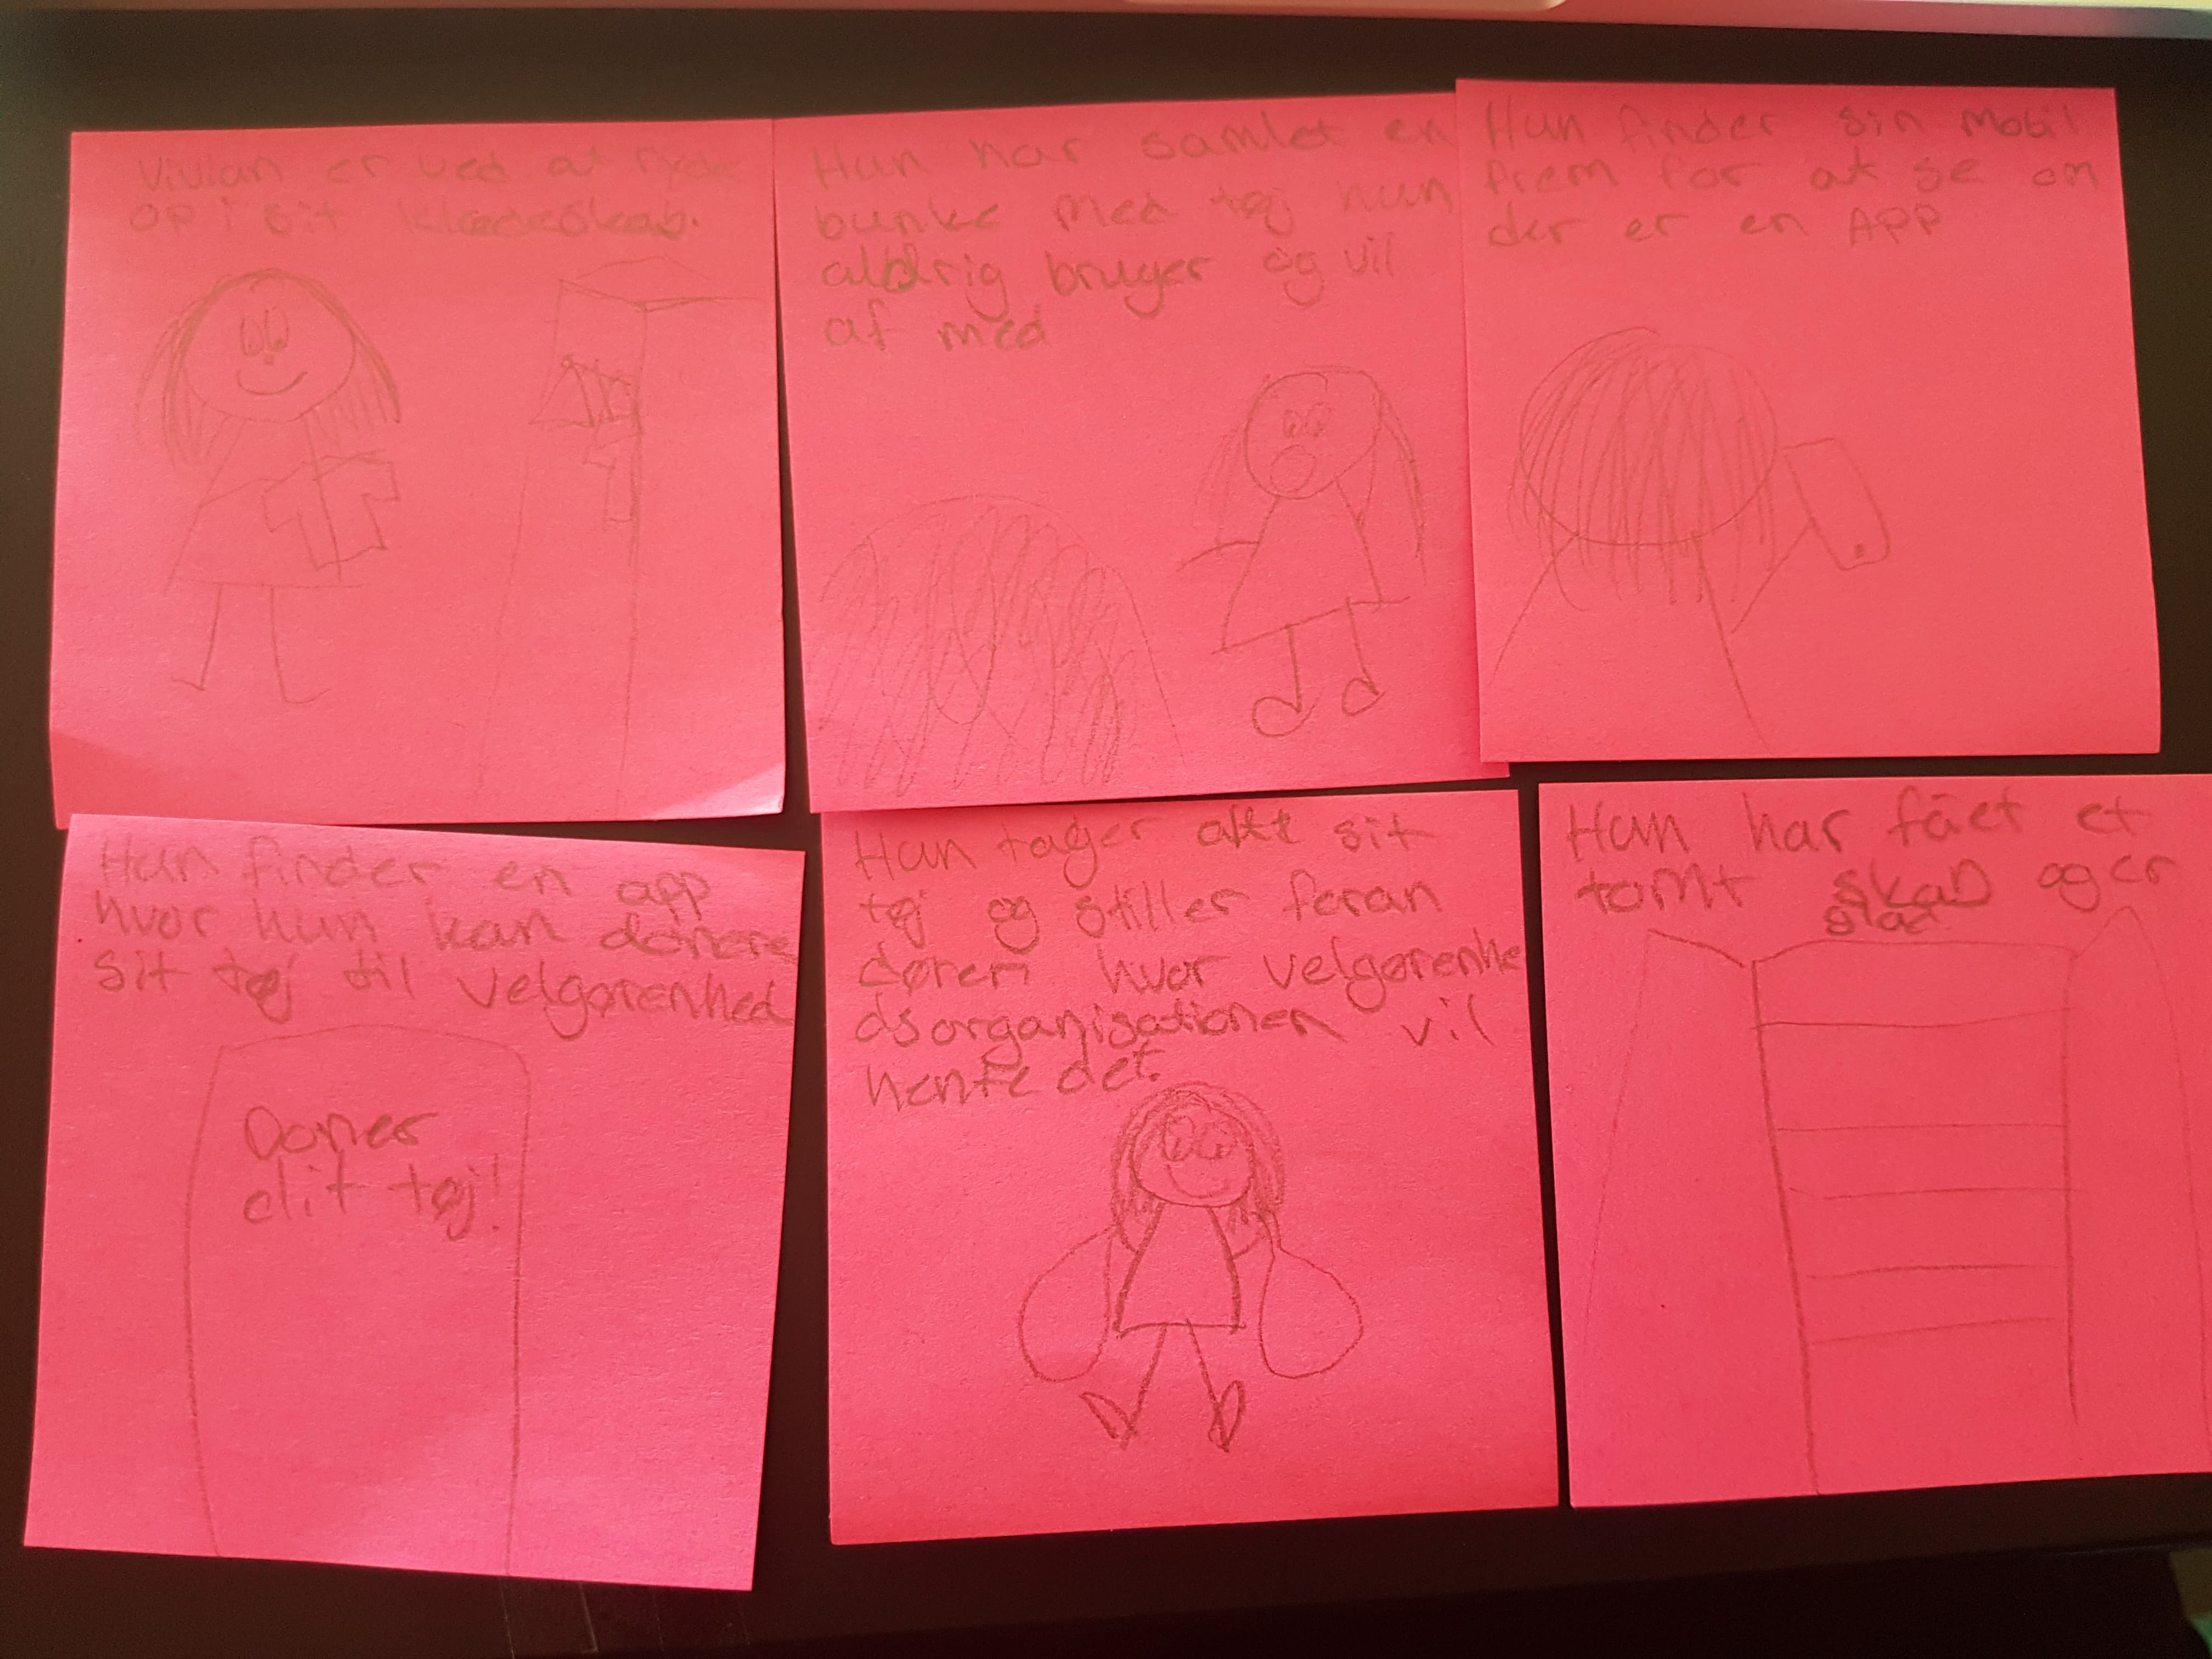 Vivian er ved at rydde
op i sit klædeskab.
Hun har samlet en
bunke med tøj hun
aldrig bruger og vil
af med
Hun finder sin mobil
frem for at se om
der er en APP
Hun finder en app
hvor hun kan donere
sit tøj til velgørenhed
Doner
dit tøj!
Hun tager alt sit
tøj og stiller foran
døren hvor velgørenhe
dsorganisationen vil
hente det.
Hun har fået et
tomt skab og er
glad